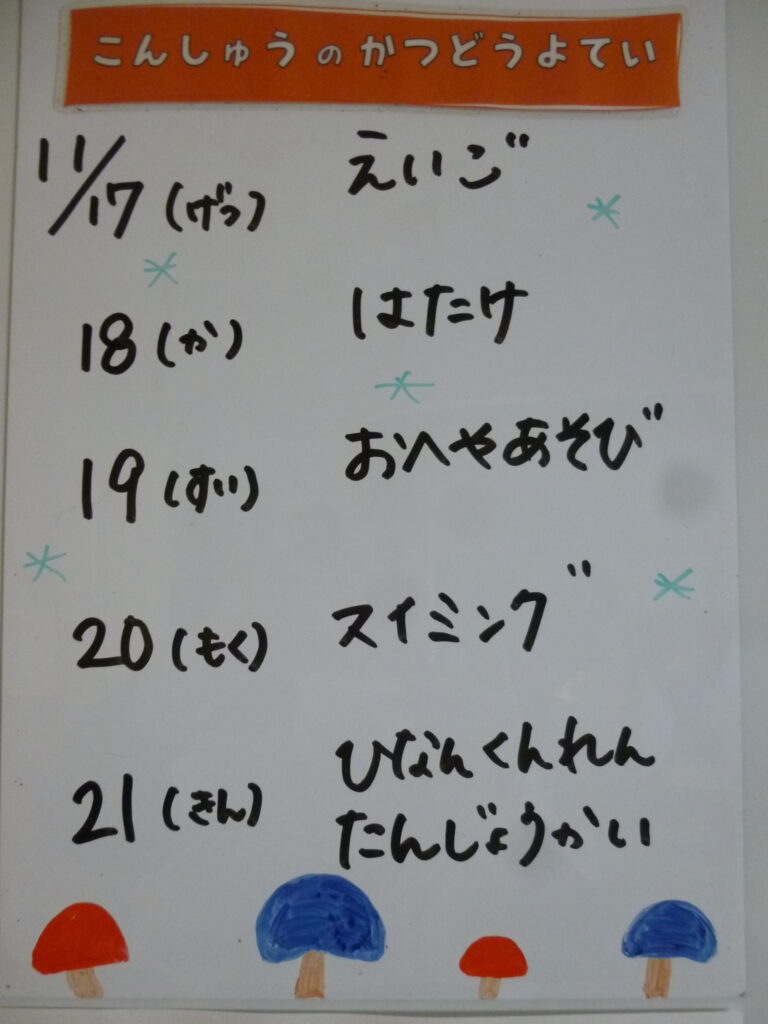 こんしゅうのかつどうよてい
11/17(げつ) えいご
18(か) はたけ
19(すい) おへやあそび
20(もく) スイミング
21(きん) ひなんくんれん
たんじょうかい